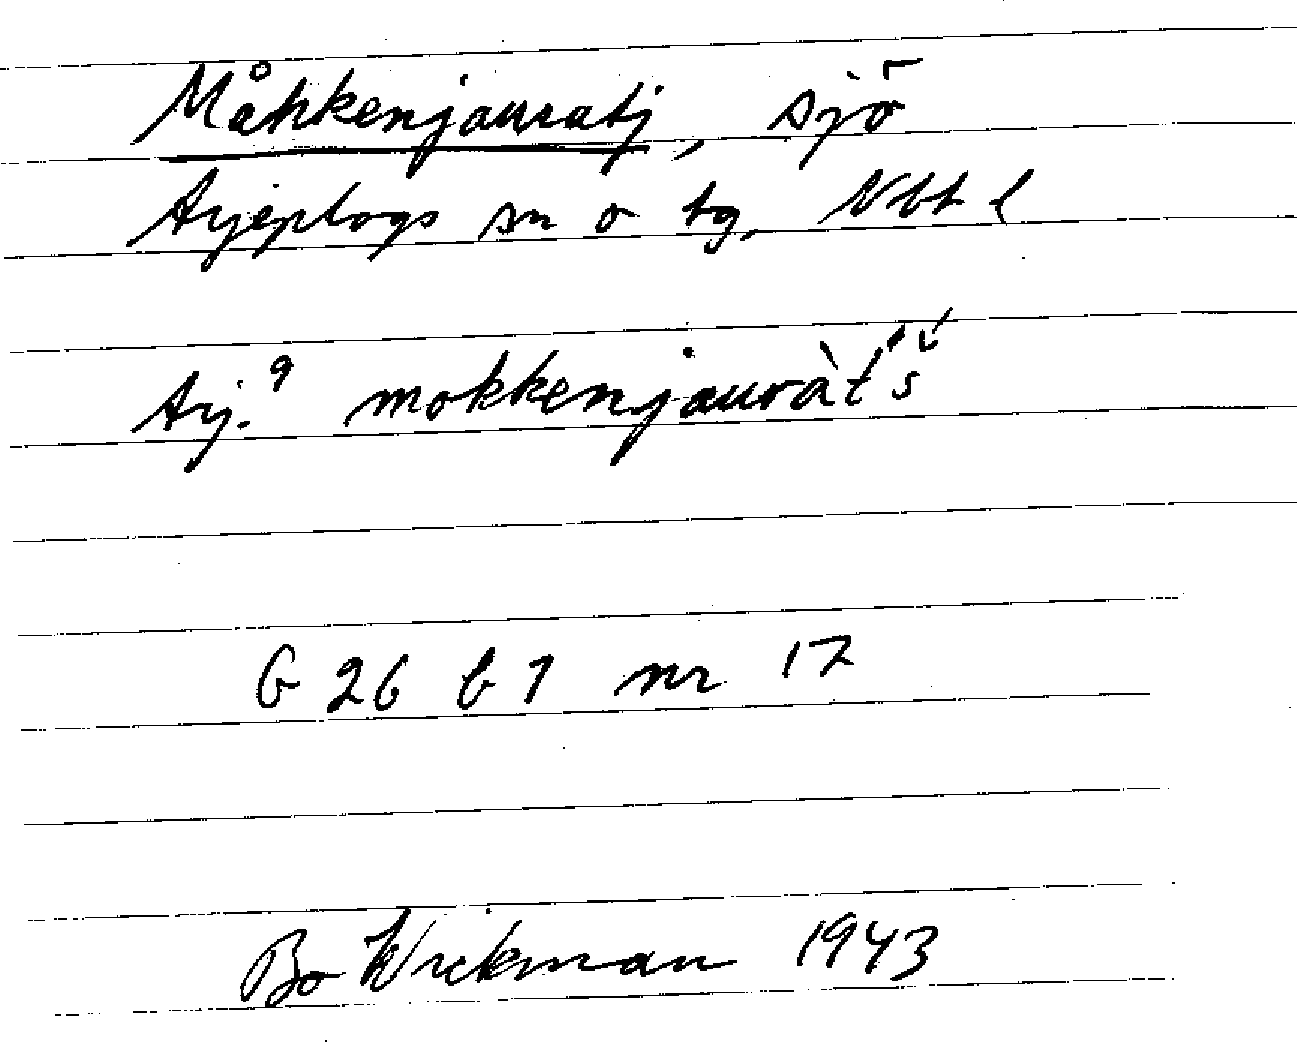 Måhkkenjauratj, sjö
Arjeplogs sn o tg, Vbt l
Arj.⁹ mokkenjauràt́š́
G 26 b 1 nr 17
Bo Wickman 1943